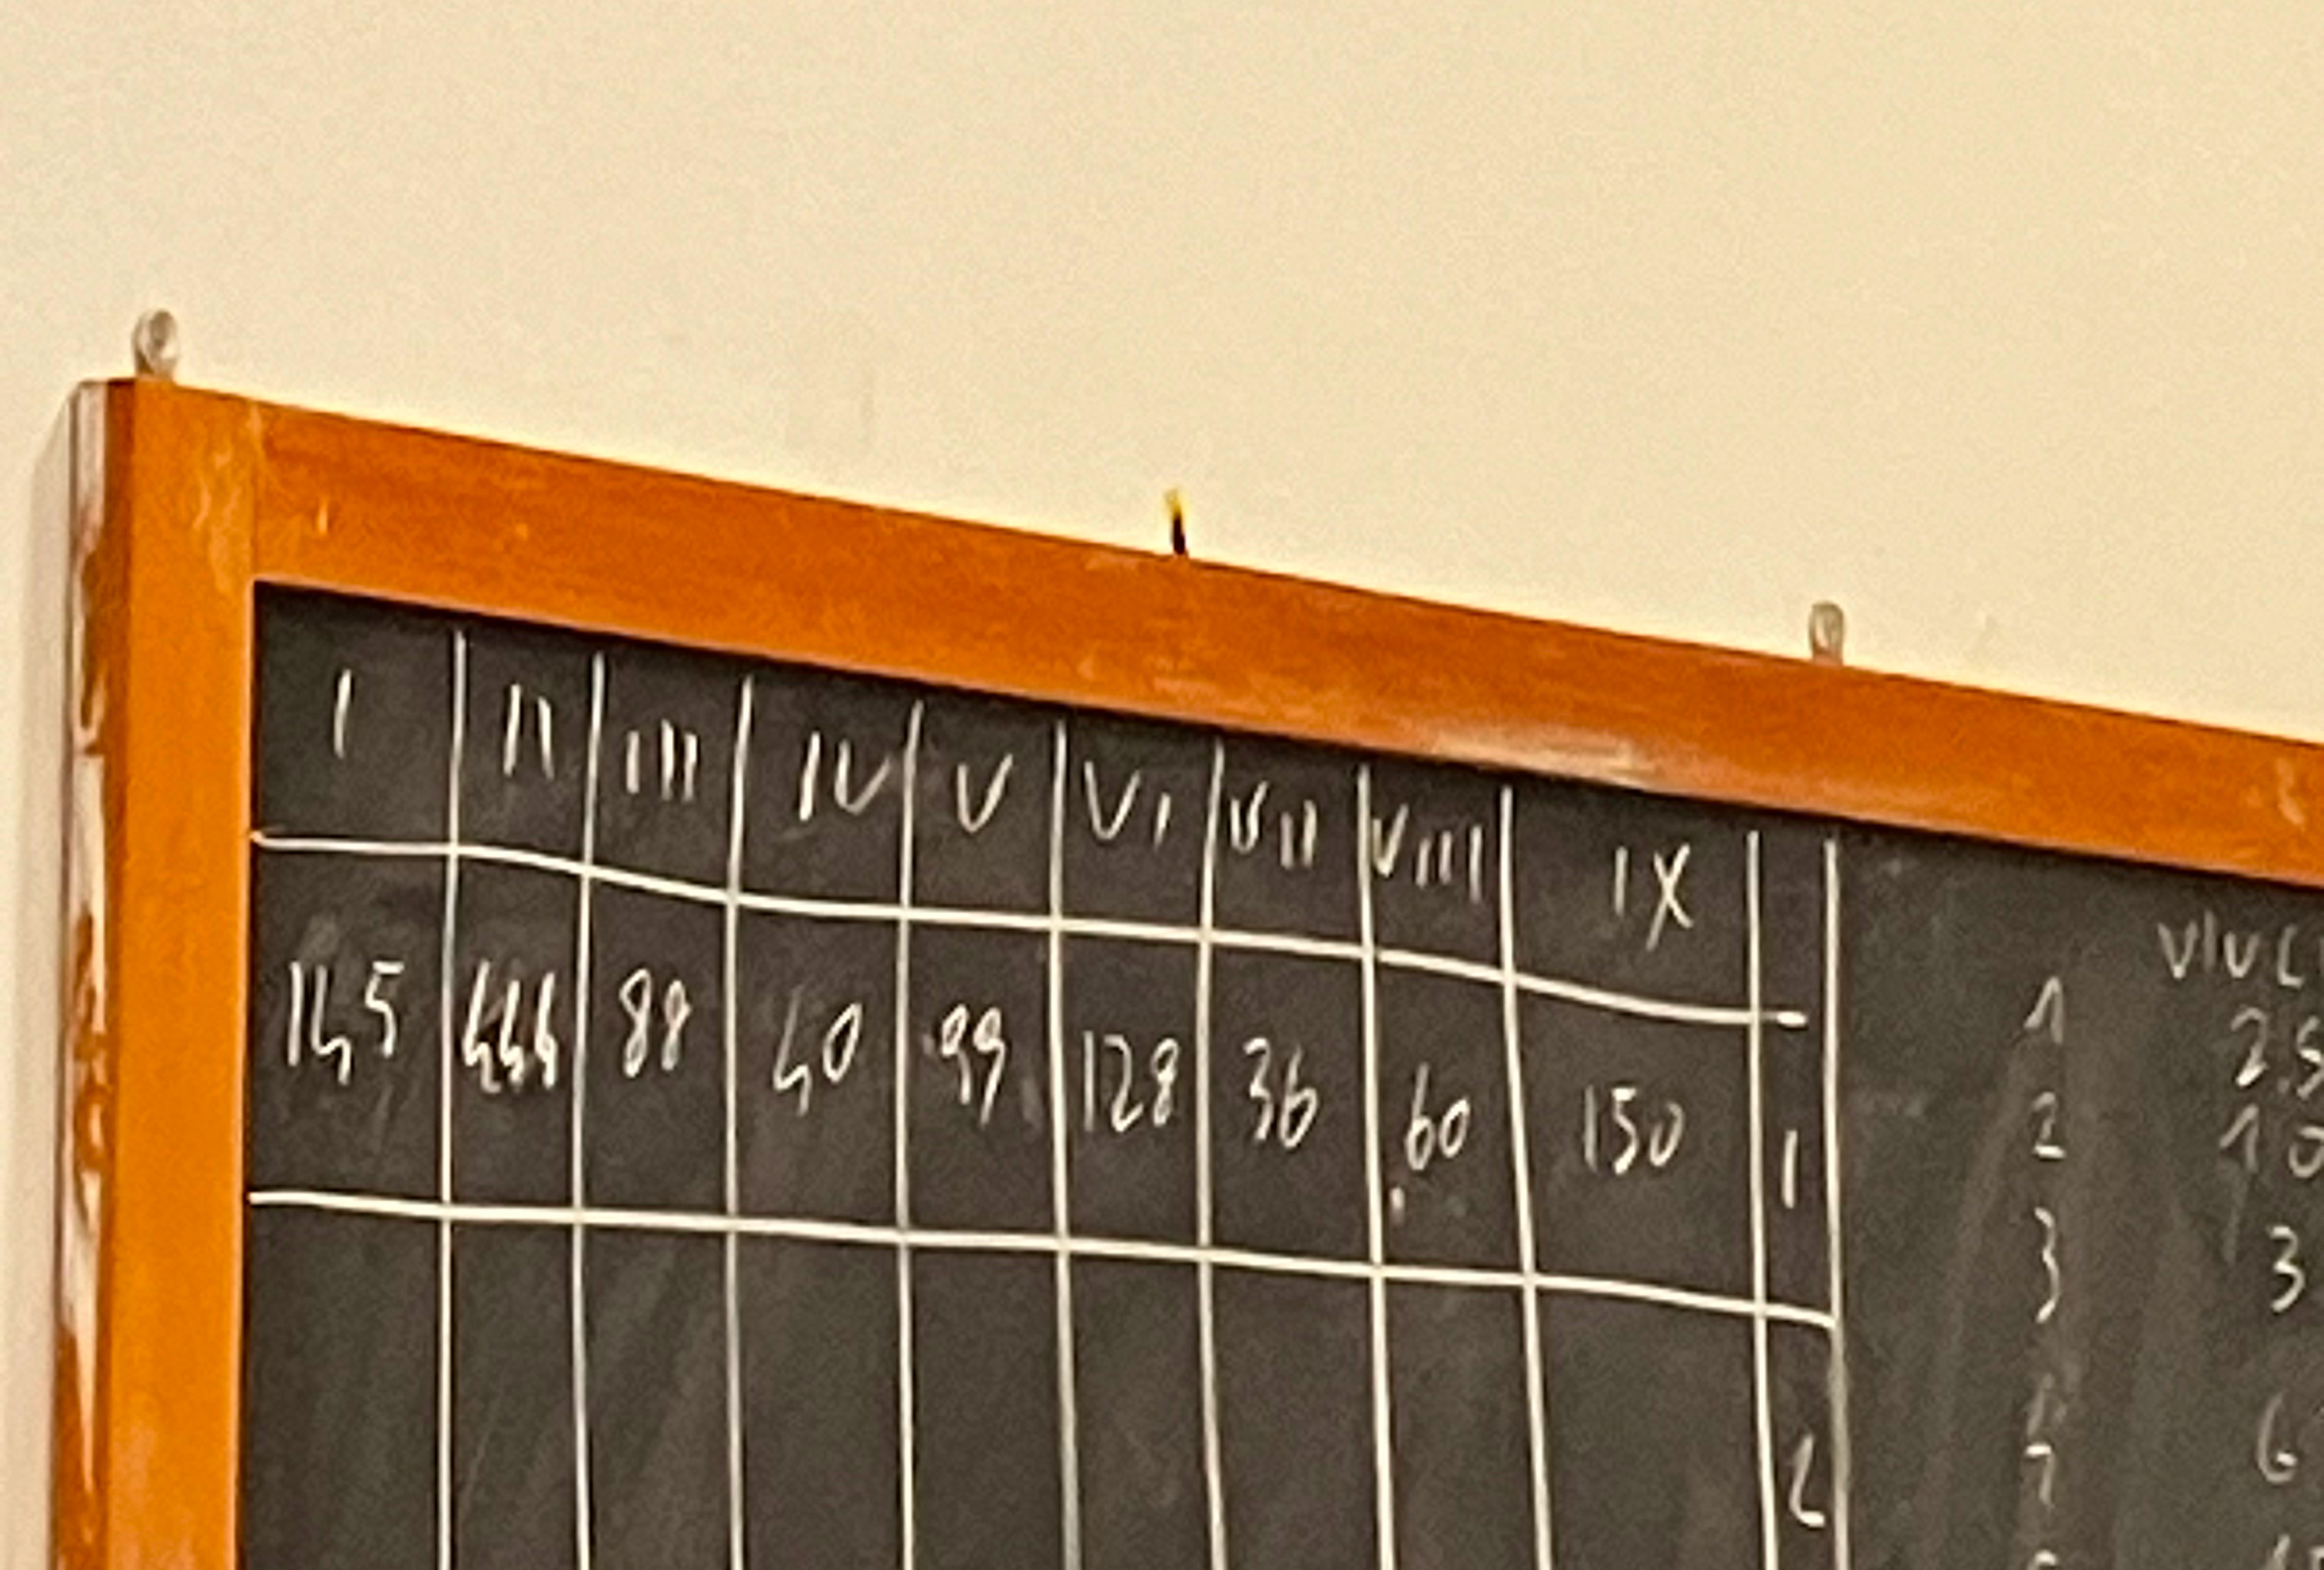 I II III IV V VI VII VIII IX
145 444 88 40 99 128 36 60 150 1
2
1
2 10
3 3
6
7